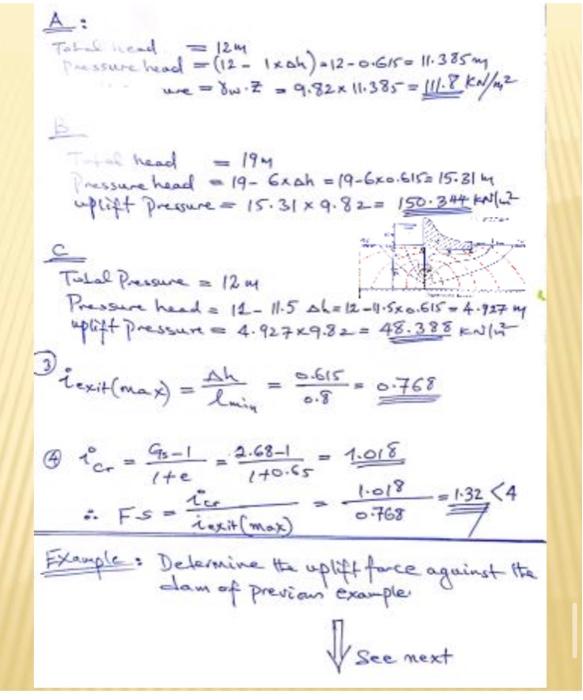 A :
Total head = 12m
Pressure head = (12 - 1xΔh) = 12-0.615 = 11.385 m
= γw.Z = 9.82x 11.385 = 111.8 KN/m²
B
Total head = 19m
Pressure head = 19- 6xΔh = 19-6x0.615= 15.31 m
uplift Pressure = 15.31 x 9.82 = 150.344 kN/m²
C
Total Pressure = 12 m
Pressure head = 12 - 11.5 Δh = 12-11.5x0.615 = 4.927 m
uplift pressure = 4.927x9.82 = 48.388 kN/m²
③ iexit(max) = Δh / lmin = 0.615 / 0.8 = 0.768
④ icr = Gs-1 / 1+e = 2.68-1 / 1+0.65 = 1.018
∴ FS = icr / iexit(max) = 1.018 / 0.768 = 1.32 < 4
Example : Determine the uplift force against the
dam of previous example
See next